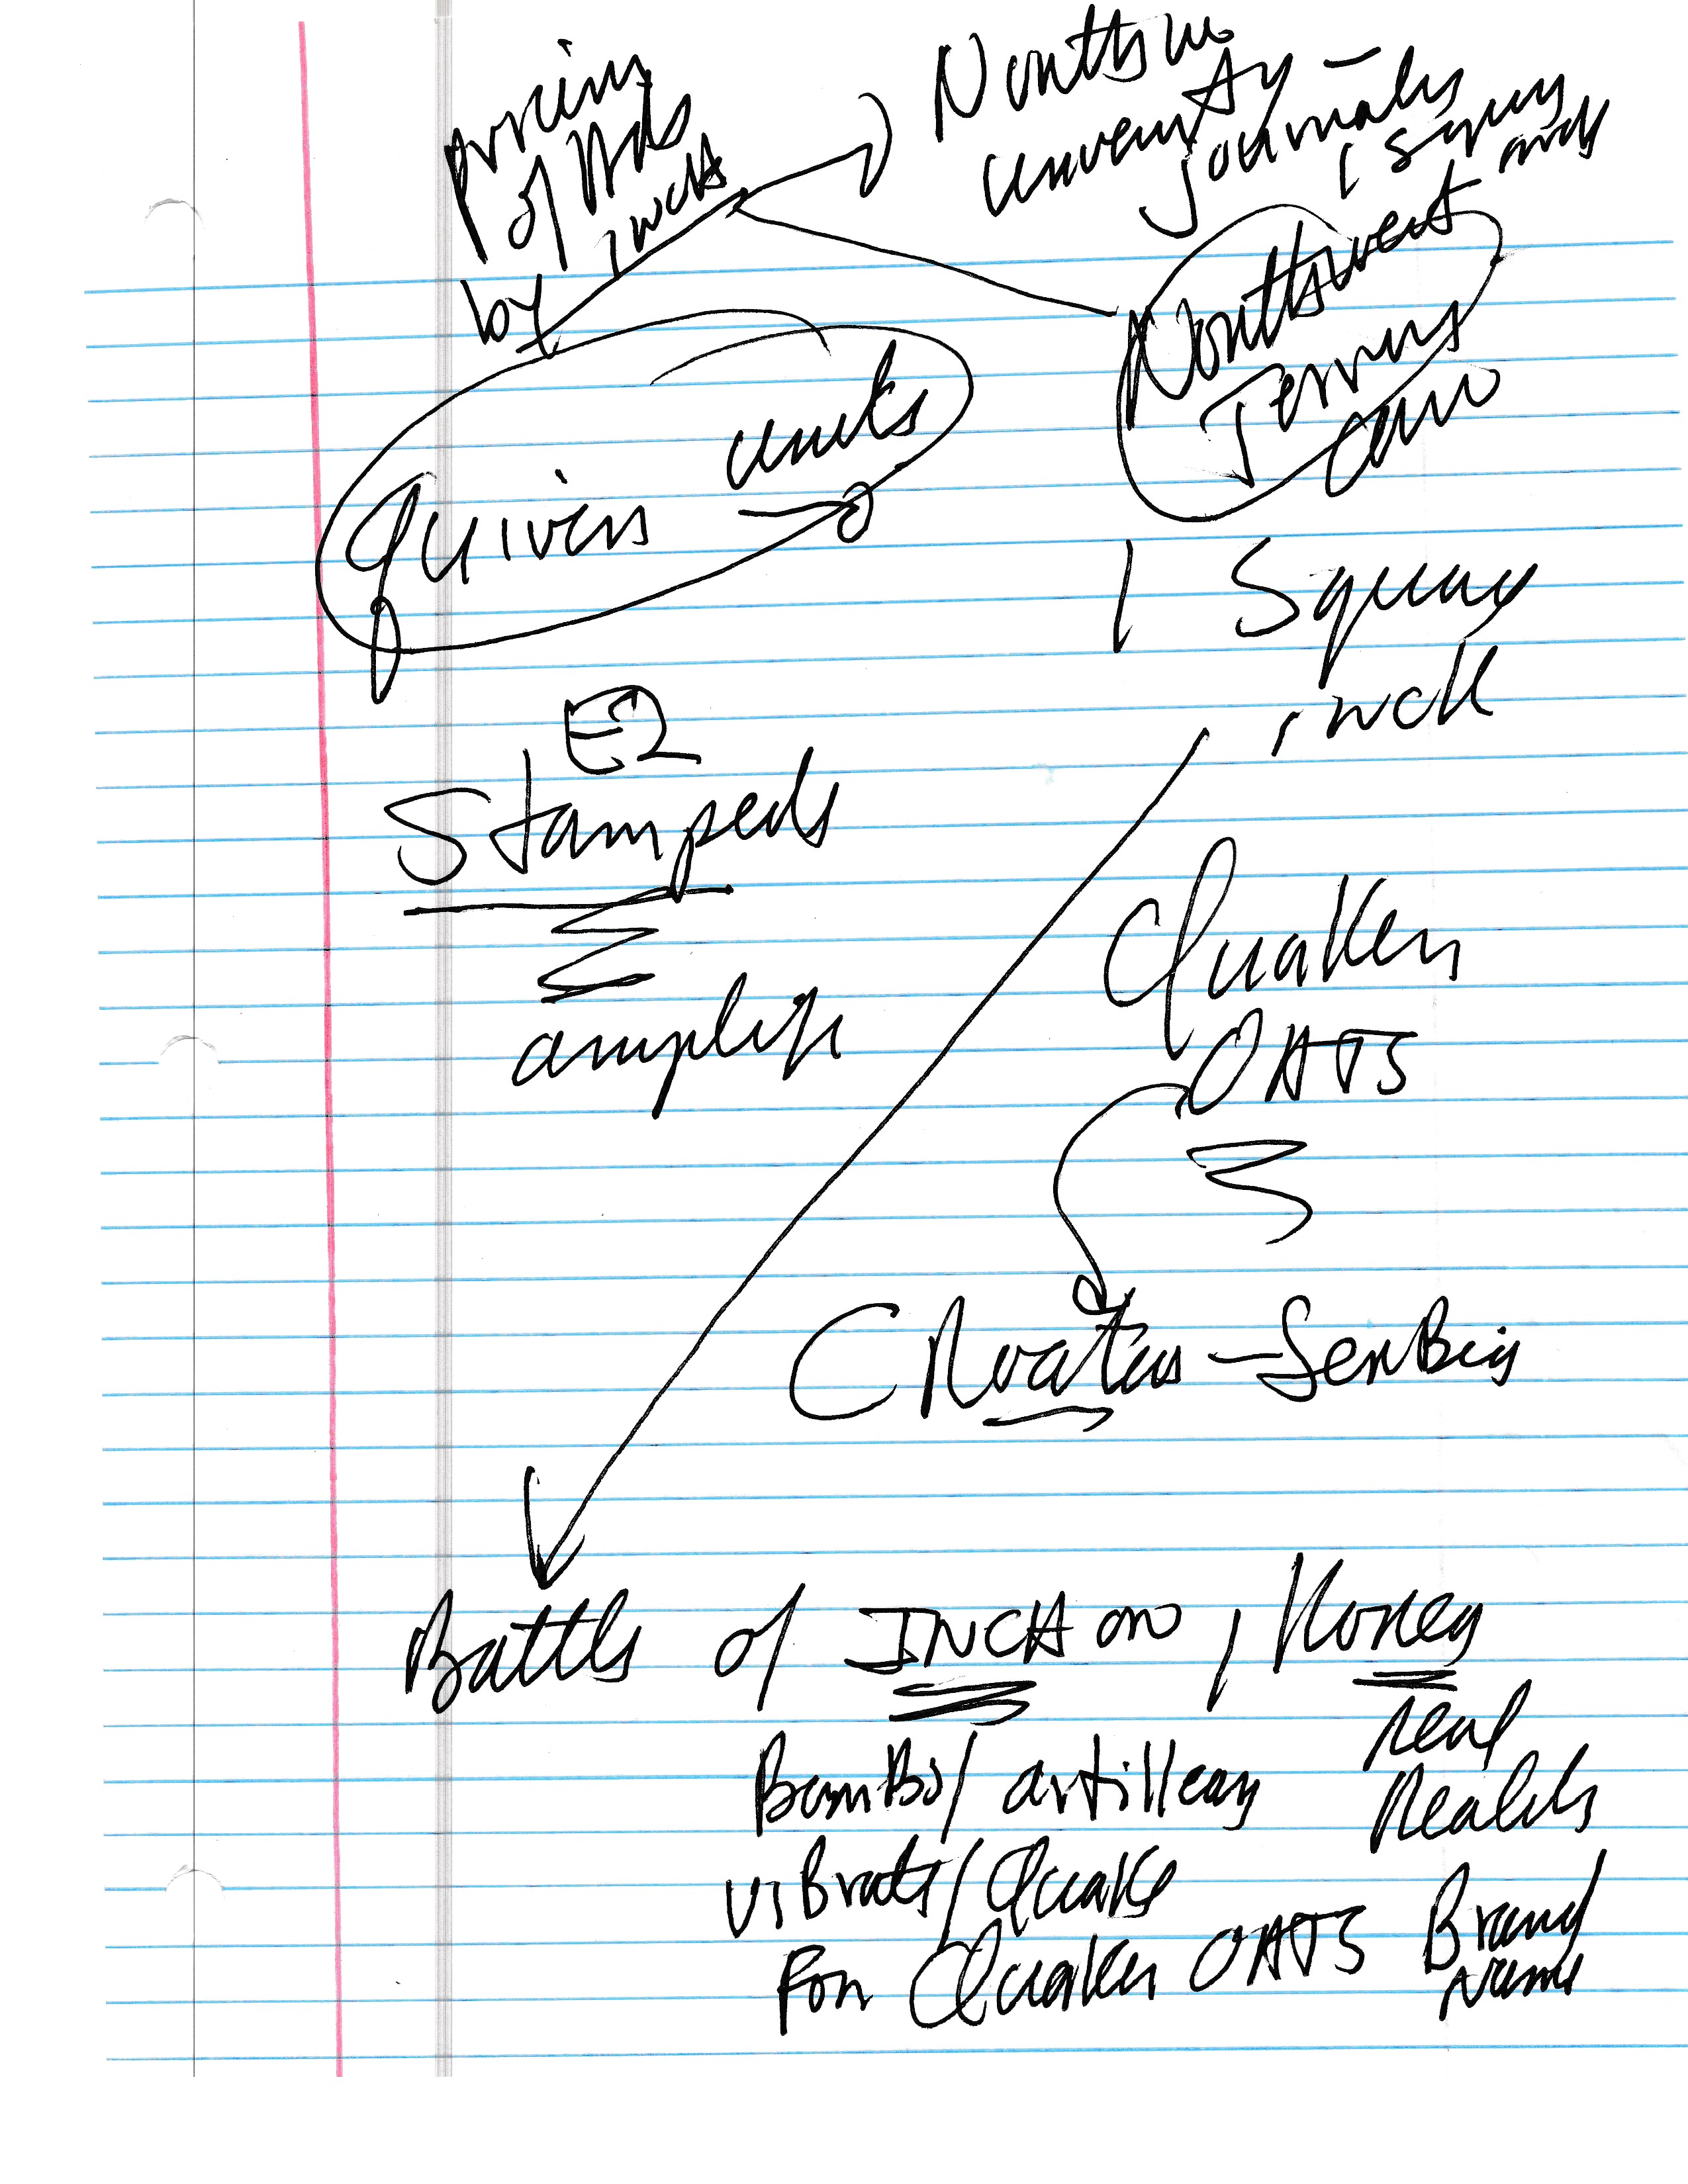 pricing
of Ads
by inch
Northw
University -
journalis
1 square inch
Northwest
units
Quivers
1 Square
inch
E2
Stampeds
amplify
Quaker
OATS
CRoatia - SerBia
Battle of INCHon, Korea
real
Bombs / artillery
vibrate / Quake
For Quaker OATS Brand
Name